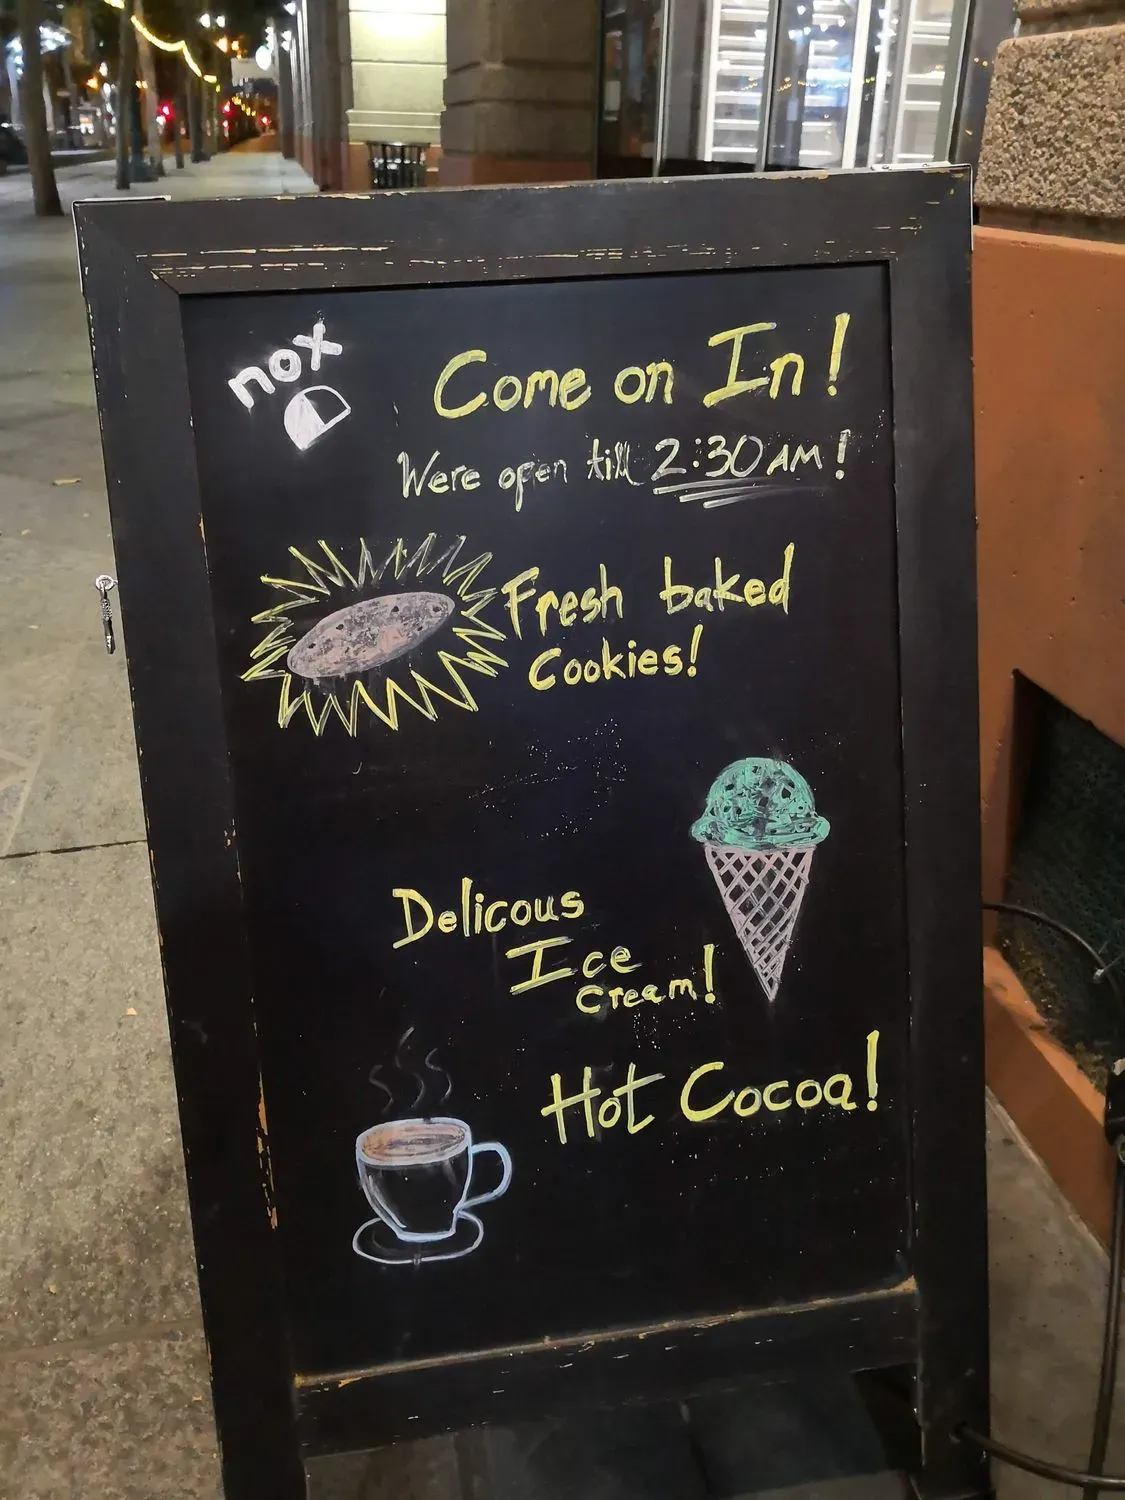 nox
Come on In!
Were open till 2:30AM!
Fresh baked
Cookies!
Delicous
Ice
Cream!
Hot Cocoa!